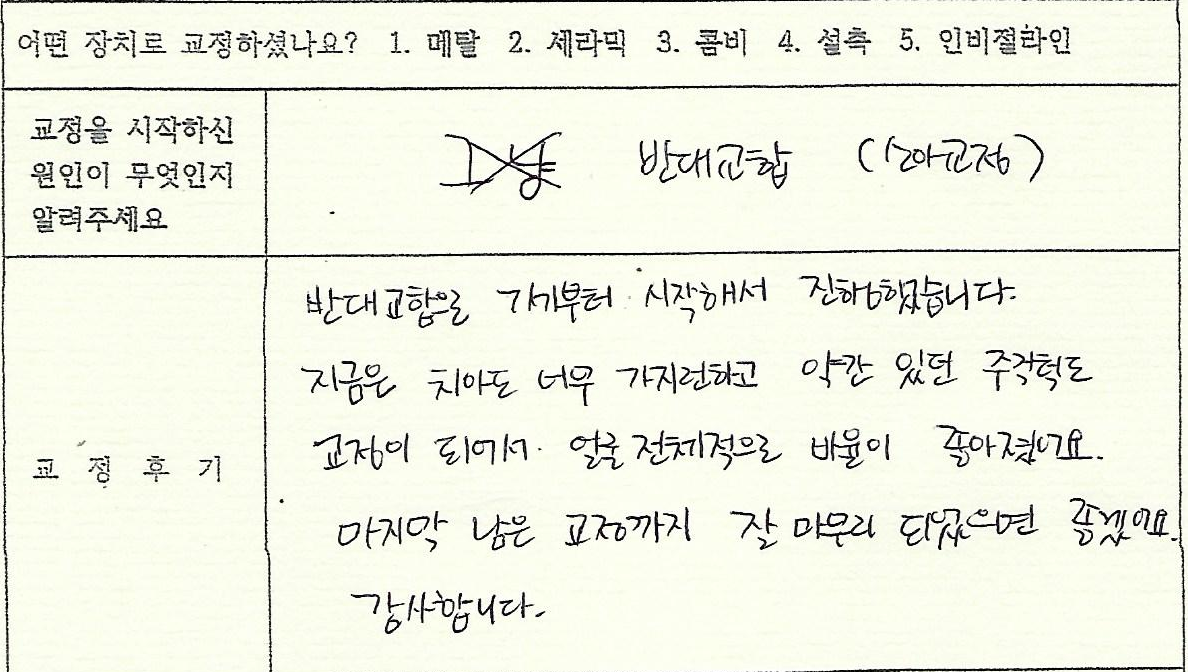 어떤 장치로 교정하셨나요? 1. 메탈 2. 세라믹 3. 콤비 4. 설측 5. 인비절라인
교정을 시작하신
원인이 무엇인지
알려주세요
반대교합 (소아교정)
반대교합으로 시작해서 진행했습니다.
지금은 치아도 너무 가지런하고 약간 있던 주걱턱도
교정이 되어서 얼굴 전체적으로 비율이 좋아졌어요.
교 정 후 기
마지막 남은 교정까지 잘 마무리 되었으면 좋겠어요.
감사합니다.